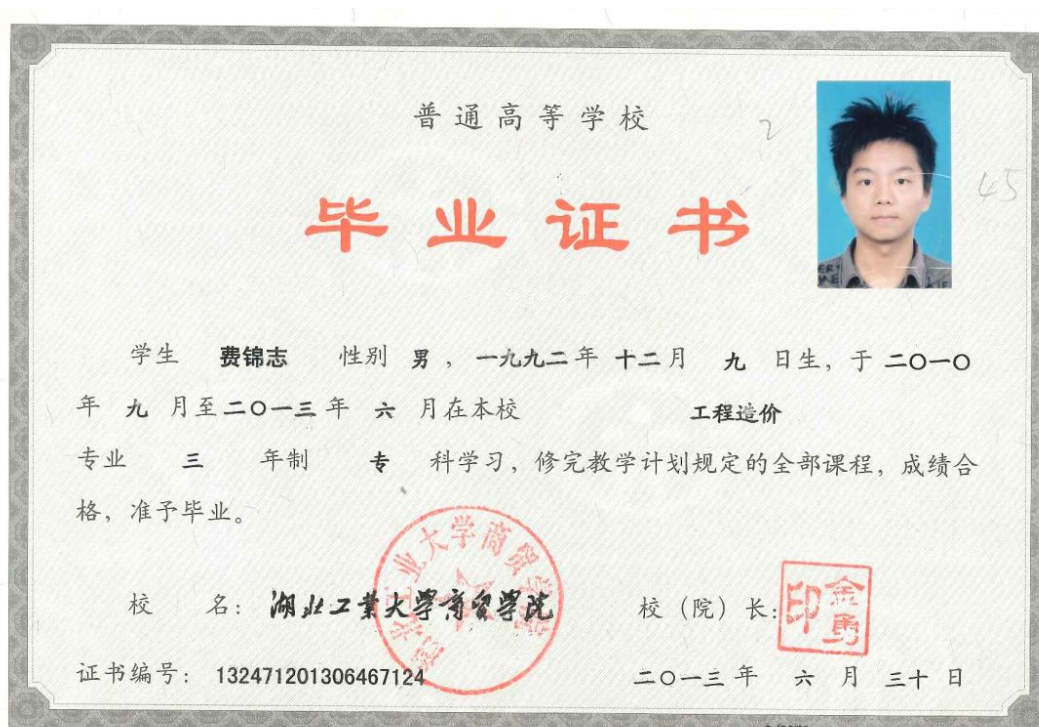 普通高等学校
2
45
毕业证书
学生 费锦志 性别 男，一九九二年 十二月 九 日生，于 二〇一〇
年 九 月至二〇一三年 六 月在本校 工程造价
专业 三 年制 专 科学习，修完教学计划规定的全部课程，成绩合
格，准予毕业。
湖北工业大学商贸学院
校 名：湖北工业大学商贸学院 校（院）长：
金勇印
证书编号：132471201306467124 二〇一三年 六 月 三十 日